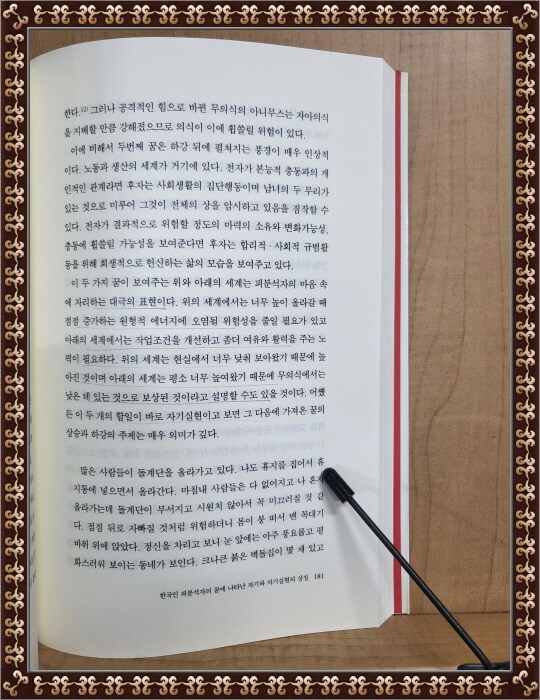 한다.12) 그러나 공격적인 힘으로 바뀐 무의식의 아니무스는 자아의식
을 지배할 만큼 강해졌으므로 의식이 이에 휩쓸릴 위험이 있다.
이에 비해서 두번째 꿈은 하강 뒤에 펼쳐지는 풍경이 매우 인상적
이다. 노동과 생산의 세계가 거기에 있다. 전자가 본능적 충동과의 개
인적인 관계라면 후자는 사회생활의 집단행동이며 남녀의 두 무리가
있는 것으로 미루어 그것이 전체의 상을 암시하고 있음을 짐작할 수
있다. 전자가 결과적으로 위험할 정도의 마력의 소유와 변화가능성,
충동에 휩쓸릴 가능성을 보여준다면 후자는 합리적·사회적 규범활
동을 위해 희생적으로 헌신하는 삶의 모습을 보여주고 있다.
이 두 가지 꿈이 보여주는 위와 아래의 세계는 피분석자의 마음 속
에 자리하는 대극의 표현이다. 위의 세계에서는 너무 높이 올라갈 때
점점 증가하는 원형적 에너지에 오염될 위험성을 줄일 필요가 있고
아래의 세계에서는 작업조건을 개선하고 좀더 여유와 활력을 주는 노
력이 필요하다. 위의 세계는 현실에서 너무 낮춰 보아왔기 때문에 높
아진 것이며 아래의 세계는 평소 너무 높여왔기 때문에 무의식에서는
낮은 데 있는 것으로 보상된 것이라고 설명할 수도 있을 것이다. 어쨌
든 이 두 개의 합일이 바로 자기실현이고 보면 그 다음에 가져온 꿈의
상승과 하강의 주제는 매우 의미가 깊다.
많은 사람들이 돌계단을 올라가고 있다. 나도 휴지를 집어서 휴
지통에 넣으면서 올라간다. 마침내 사람들은 다 없어지고 나 혼자
올라가는데 돌계단이 부서지고 시원치 않아서 꼭 미끄러질 것 같
다. 점점 뒤로 자빠질 것처럼 위험하더니 몸이 붕 떠서 맨 꼭대기
바위 위에 앉았다. 정신을 차리고 보니 눈 앞에는 아주 풍요롭고 평
화스러워 보이는 동네가 보인다. 크나큰 붉은 벽돌집이 몇 채 있고
한국인 피분석자의 꿈에 나타난 자기와 자기실현의 상징 181